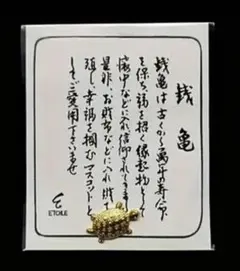 銭亀
銭亀は古くから萬年の寿命
を保ち福を招く縁起物として
懐中などに入れ信仰されてきます
是非、お財布などに入れ財を
殖し、幸福を掴むマスコットと
してご愛用下さいませ
ETOILE